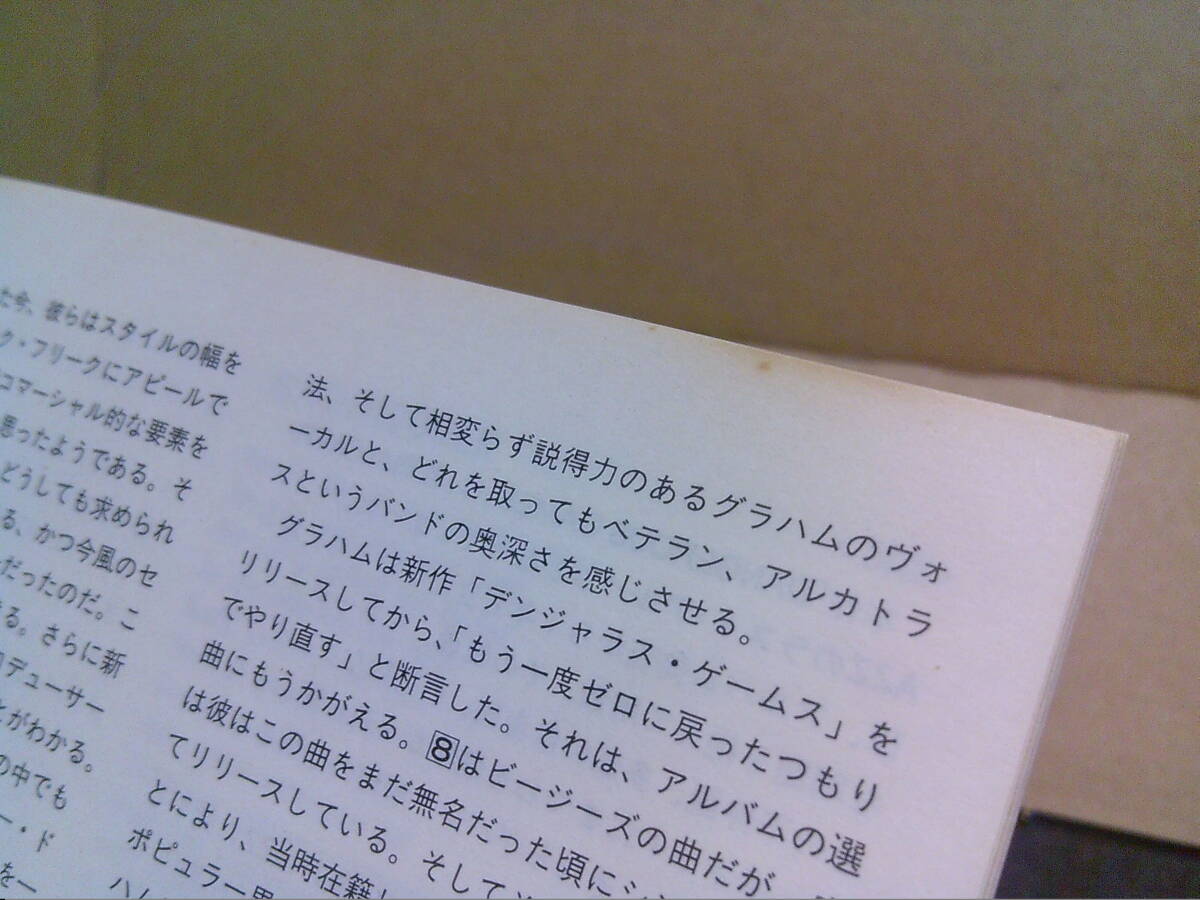 た今、彼らはスタイルの幅を
ク・フリークにアピールで
コマーシャル的な要素を
思ったようである。そ
どうしても求められ
る、かつ今風のセ
だったのだ。こ
る。さらに新
ロデューサー
とがわかる。
の中でも
ー・ド
を一
法、そして相変らず説得力のあるグラハムのヴォ
ーカルと、どれを取ってもベテラン、アルカトラ
スというバンドの奥深さを感じさせる。
グラハムは新作「デンジャラス・ゲームス」を
リリースしてから、「もう一度ゼロに戻ったつもり
でやり直す」と断言した。それは、アルバムの選
曲にもうかがえる。8はビージーズの曲だが、
は彼はこの曲をまだ無名だった頃にシ
てリリースしている。そして
とにより、当時在籍
ポピュラー界
ハ